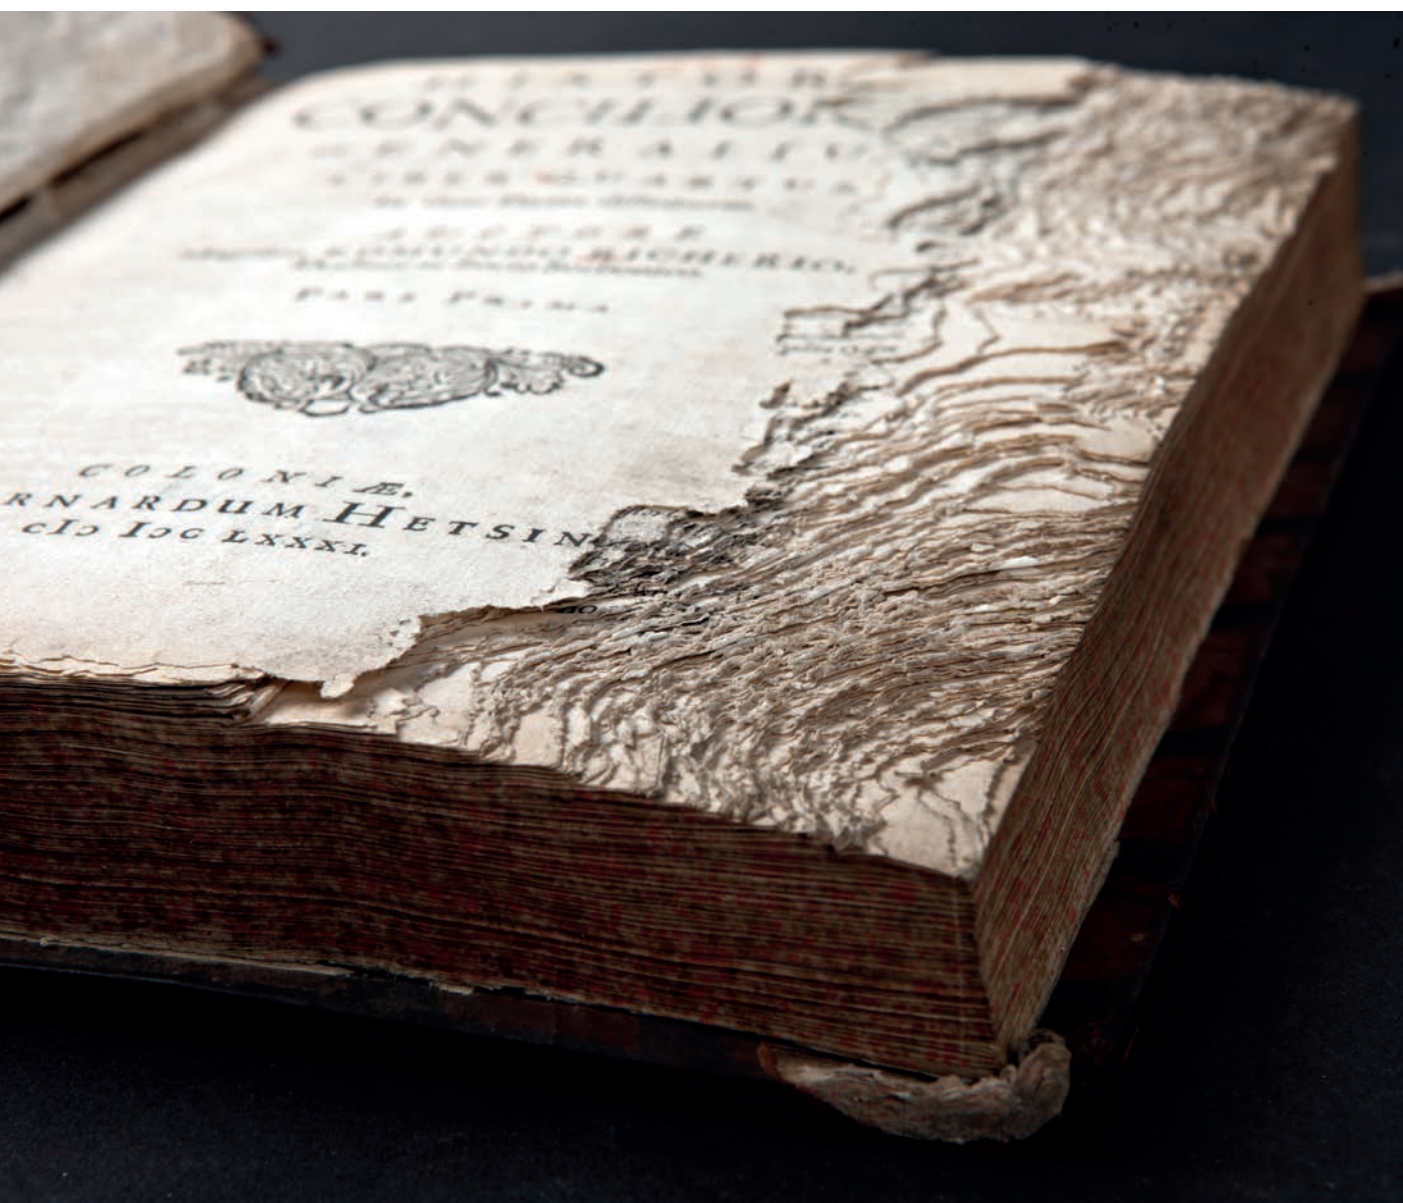 HISTOR
CONCILIOR
GENERALIU
LIBER QUARTUS
AUCTORE
EDMUNDO RICHERIO,
PARS PRIMA
COLONIÆ,
RNARDUM HETSIN
cIↄ Iↄc LXXXI.